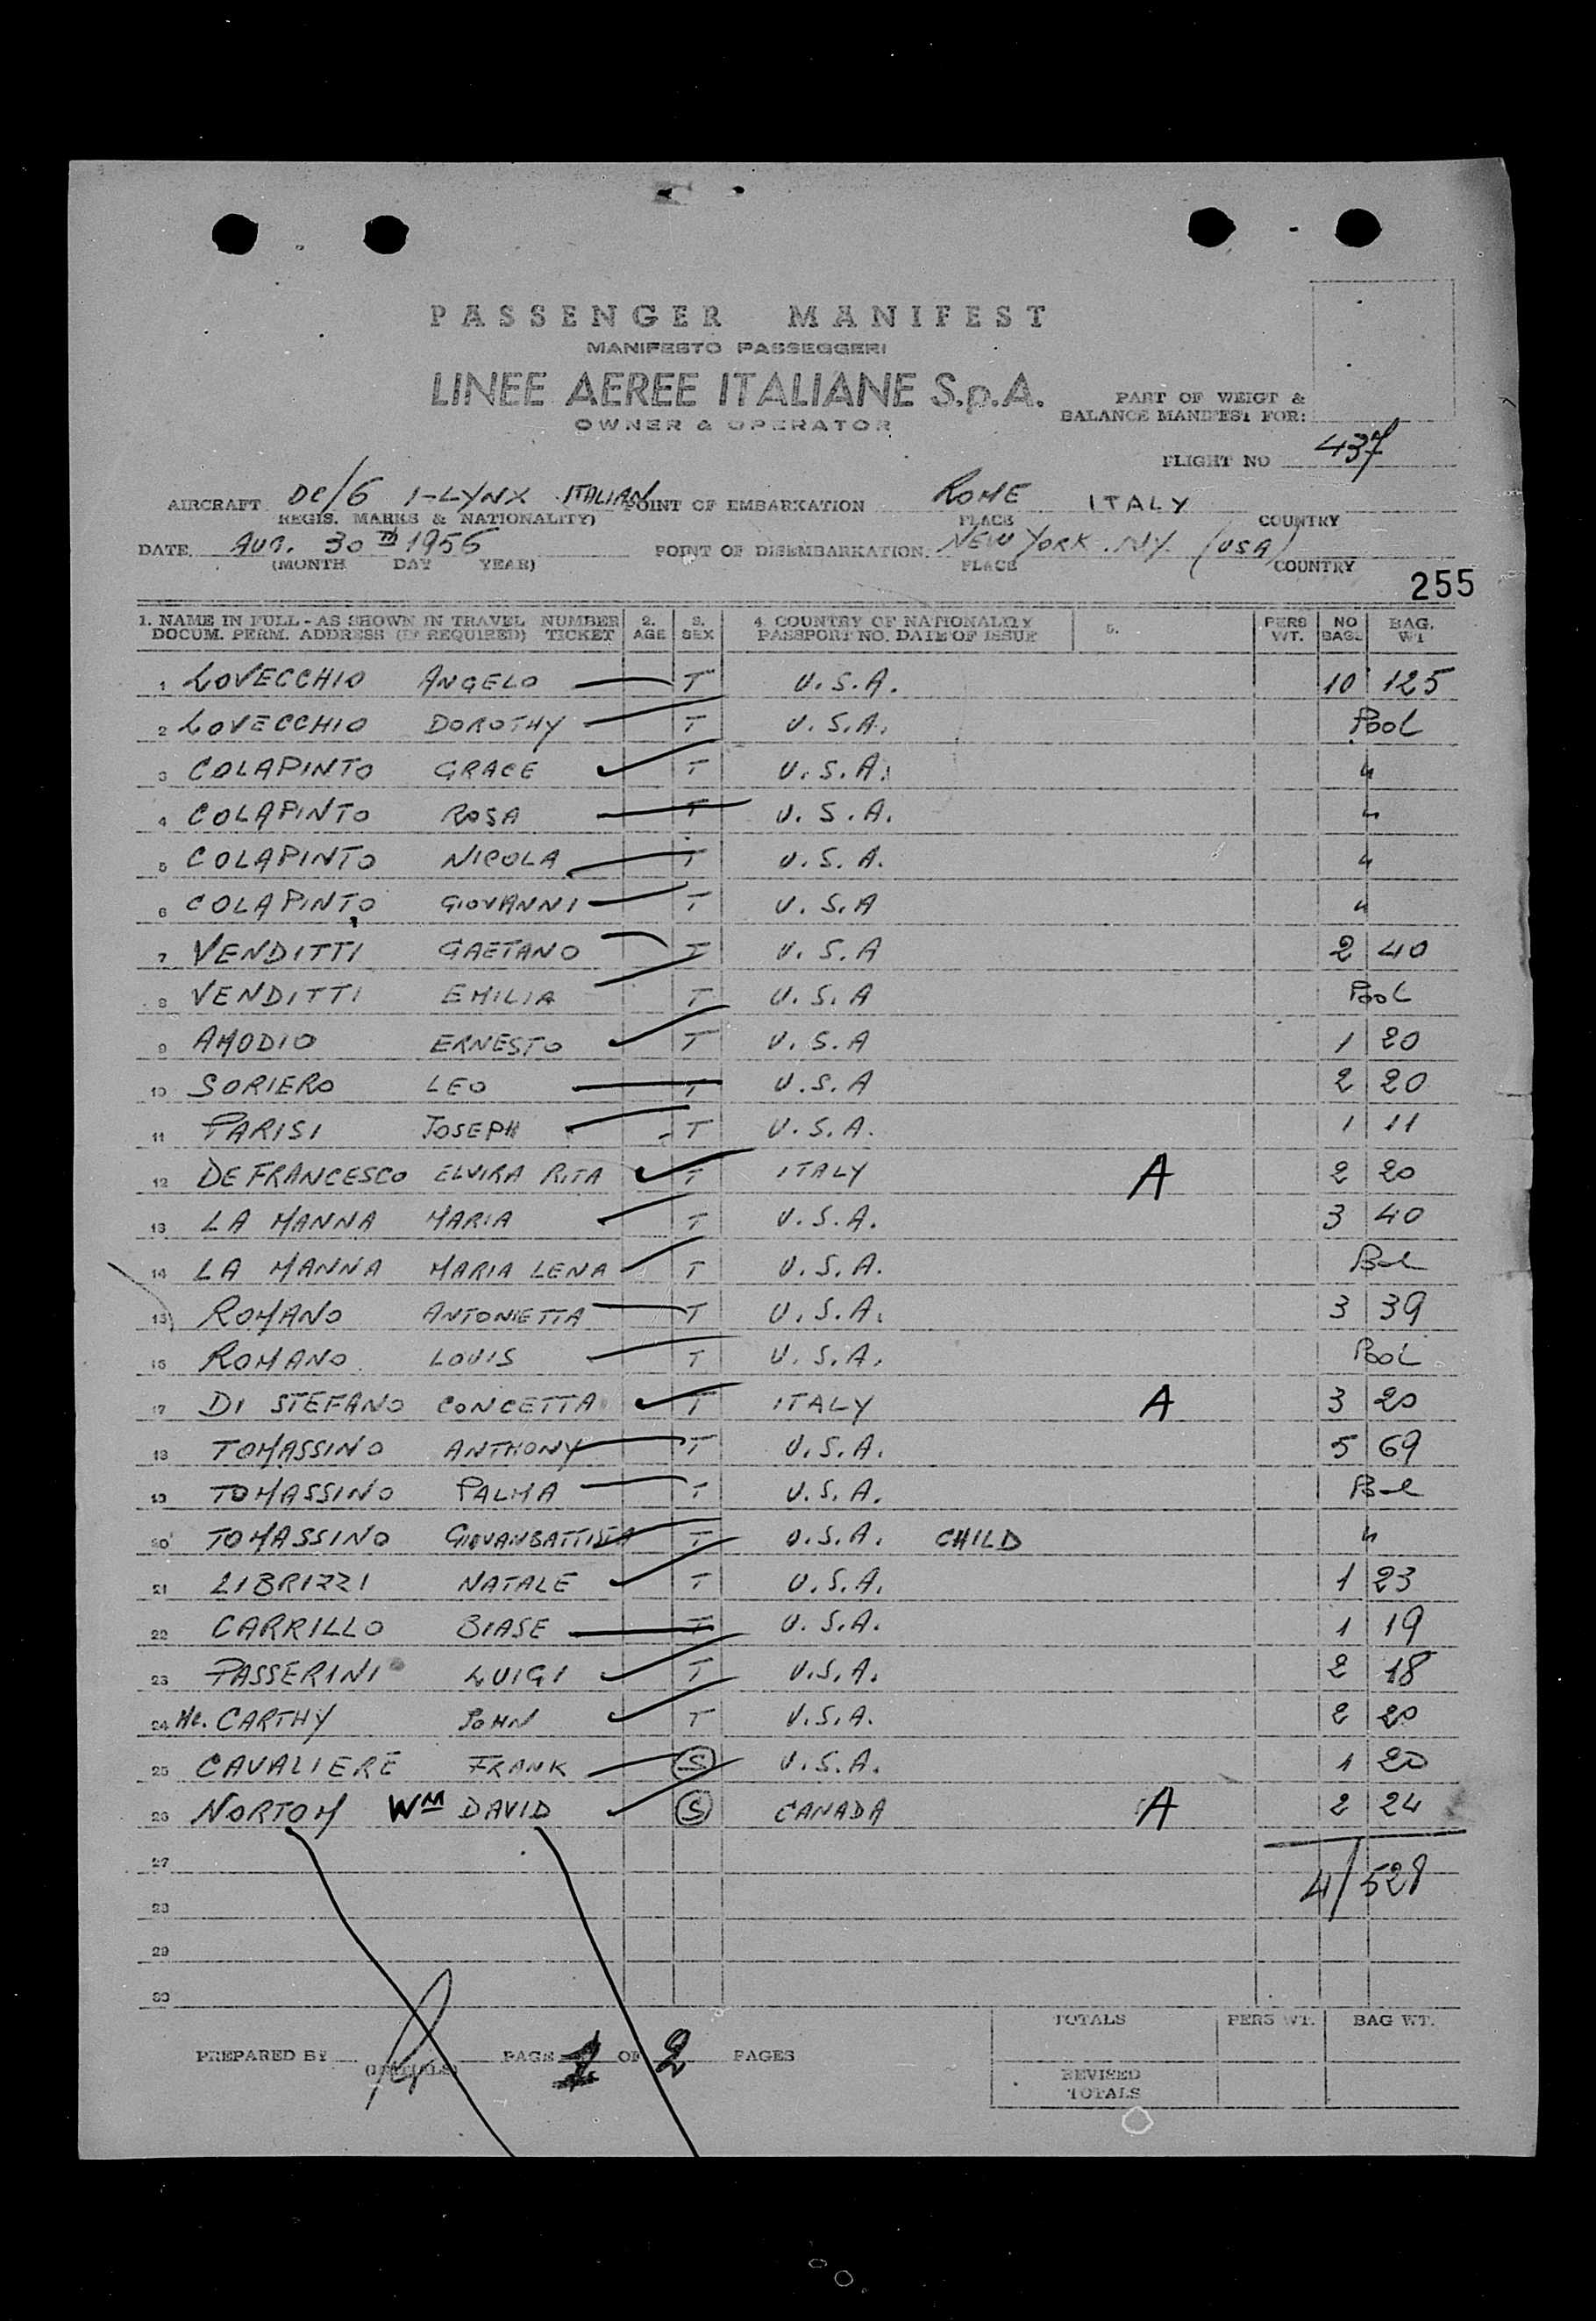 PASSENGER MANIFEST
MANIFESTO PASSEGGERI
LINEE AEREE ITALIANE S.p.A.
OWNER & OPERATOR
PART OF WEIGT &
BALANCE MANIFEST FOR:
FLIGHT NO 437
AIRCRAFT DC/6 I-LYNX ITALIAN POINT OF EMBARKATION ROME ITALY
REGIS. MARKS & NATIONALITY) PLACE COUNTRY
DATE AUG. 30TH 1956 POINT OF DISEMBARKATION NEW YORK. NY. (USA)
(MONTH DAY YEAR) PLACE COUNTRY
255
1. NAME IN FULL - AS SHOWN IN TRAVEL NUMBER 2. 3. 4. COUNTRY OF NATIONALITY 5. PERS NO BAG.
DOCUM. PERM. ADDRESS (IF REQUIRED) TICKET AGE SEX PASSPORT NO. DATE OF ISSUE WT. BAGS WT
1 LOVECCHIO ANGELO T U.S.A. 10 125
2 LOVECCHIO DOROTHY T U.S.A. Pool
3 COLAPINTO GRACE T U.S.A. "
4 COLAPINTO ROSA T U.S.A. "
5 COLAPINTO NICOLA T U.S.A. "
6 COLAPINTO GIOVANNI T U.S.A "
7 VENDITTI GAETANO T U.S.A 2 40
8 VENDITTI EMILIA T U.S.A Pool
9 AMODIO ERNESTO T U.S.A 1 20
10 SORIERO LEO T U.S.A 2 20
11 PARISI JOSEPH T U.S.A. 1 11
12 DE FRANCESCO ELVIRA RITA T ITALY A 2 20
13 LA MANNA MARIA T U.S.A. 3 40
14 LA MANNA MARIA LENA T U.S.A. Pool
15 ROMANO ANTONIETTA T U.S.A. 3 39
16 ROMANO LOUIS T U.S.A. Pool
17 DI STEFANO CONCETTA T ITALY A 3 20
18 TOMASSINO ANTHONY T U.S.A. 5 69
19 TOMASSINO PALMA T U.S.A. Pool
20 TOMASSINO GIOVANBATTISTA T U.S.A. CHILD "
21 LIBRIZZI NATALE T U.S.A. 1 23
22 CARRILLO BIASE T U.S.A. 1 19
23 PASSERINI LUIGI T U.S.A. 2 18
24 Mc. CARTHY JOHN T U.S.A. 2 20
25 CAVALIERE FRANK S U.S.A. 1 20
26 NORTOM WM DAVID S CANADA A 2 24
27
41/528
28
29
30
TOTALS PERS WT. BAG WT.
PREPARED BY PAGE 1 OF 2 PAGES
(INITIALS)
REVISED
TOTALS